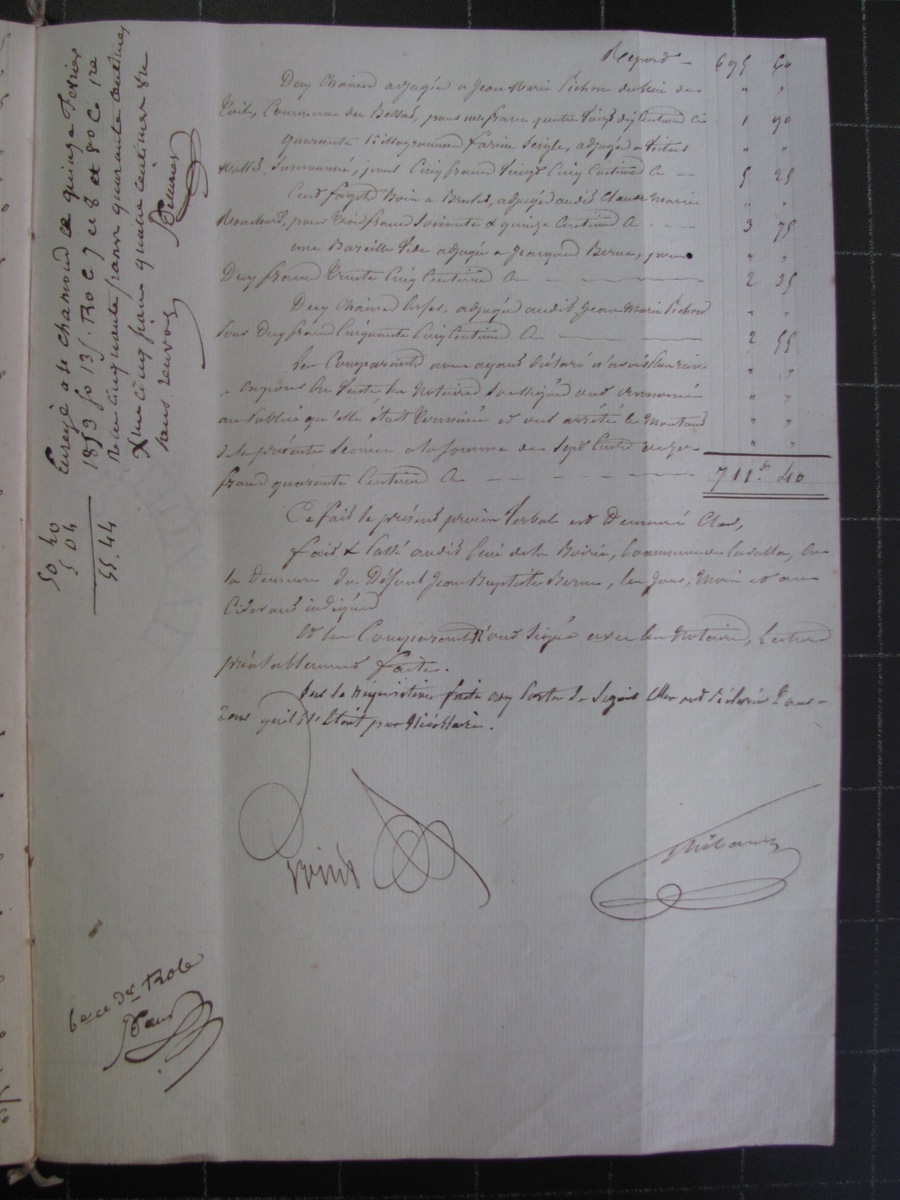 Report — 695 60
Deux Chaines adjugées à Jean Marie Pichon du lieu de " "
Toil, Commune du Bessat, pour un franc quatre vingt dix Centimes Ci 1 90
quarante Killogrammes farine Seigle, adjugée " "
surnommé, pour Cinq francs Vingt Cinq Centimes Ci — 5 25
Cent fagots Bois à Bruler, adjugés audit Claude Marie " "
pour trois francs Soixante & quinze Centimes Ci - - - 3 75
une Bareille Vide adjugée à Jacques Berne, pour " "
Deux francs Trente Cinq Centimes Ci — 2 35
Deux Chaines adjugées audit Jean Marie Pichon " "
pour Deux francs Cinquante Cinq Centimes Ci — 2 55
Les Comparants nous ayant déclaré n'avoir plus rien " "
à exposer en Vente, les Notaires Soussignés ont annoncé " "
au Public qu'elle était Terminée et ont arreté le Montant " "
de la présente Séance à la somme de Sept Cents onze " "
francs quarante Centimes Ci - - - - 711 fr 40
Ce fait le présent procès Verbal est Demeuré Clos,
fait & Passé audit lieu de la Boirie, Commune de Lavalla, En
la Demeure du Défunt Jean Baptiste Berne, les Jour, Mois et an
Ci devant indiqués
Et les Comparants ont Signé avec les Notaires, Lecture
préalablement faite.
Sur la Réquisition faite aux parties de Signer Elles ont déclaré
qu'il n'était pas Nécéssaire.
Thibaud
Enregé à St chamond ce quinze Fevrier
1853 fo 135. Ro C 7 et 8 et Vo C 1re
Reçu cinquante francs quarante centimes
Xme cinq francs quatre centimes
sans renvoy
50 40
5 04
55. 44
6e et der Role